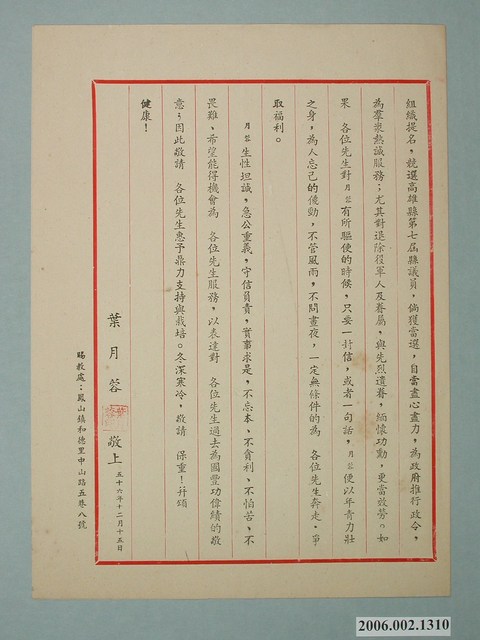 組織提名，競選高雄縣第七屆縣議員，倘獲當選，自當盡心盡力，為政府推行政令，
為羣眾熱誠服務；尤其對退除役軍人及眷屬，與先烈遺眷，緬懷功勳，更當效勞。如
果　各位先生對月蓉有所驅使的時候，只要一封信，或者一句話，月蓉便以年青力壯
之身，為人忘己的傻勁，不管風雨，不問晝夜，一定無條件的為　各位先生奔走，爭
取福利。
月蓉生性坦誠，急公重義，守信負責，實事求是，不忘本、不貪利、不怕苦、不
畏難、希望能得機會為　各位先生服務，以表達對　各位先生過去為國豐功偉績的敬
意；因此敬請　各位先生惠予鼎力支持與栽培。冬深寒冷，敬請　保重！并頌
健康！
葉月蓉　敬上　五十六年十二月十五日
賜教處：鳳山鎮和德里中山路五巷八號
2006.002.1310